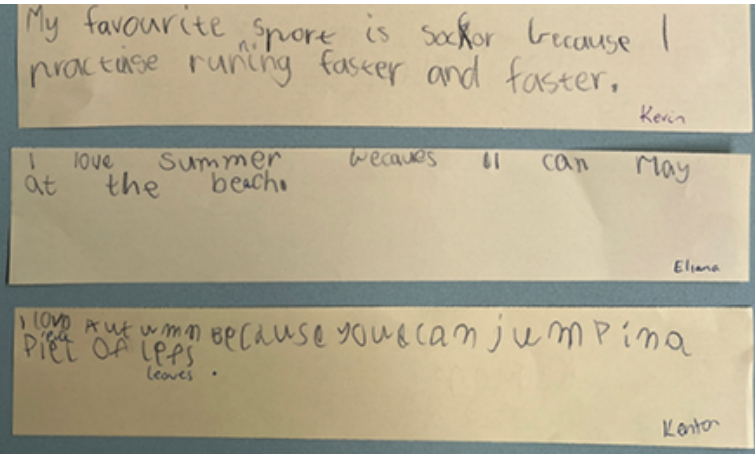 My favourite sport is sockor because I
practise runing faster and faster.
Kevin
I love summer becaues II can Play
at the beach.
Eliana
I love Autumn because you can jump in a
Piel Of leps
leaves .
Kenton